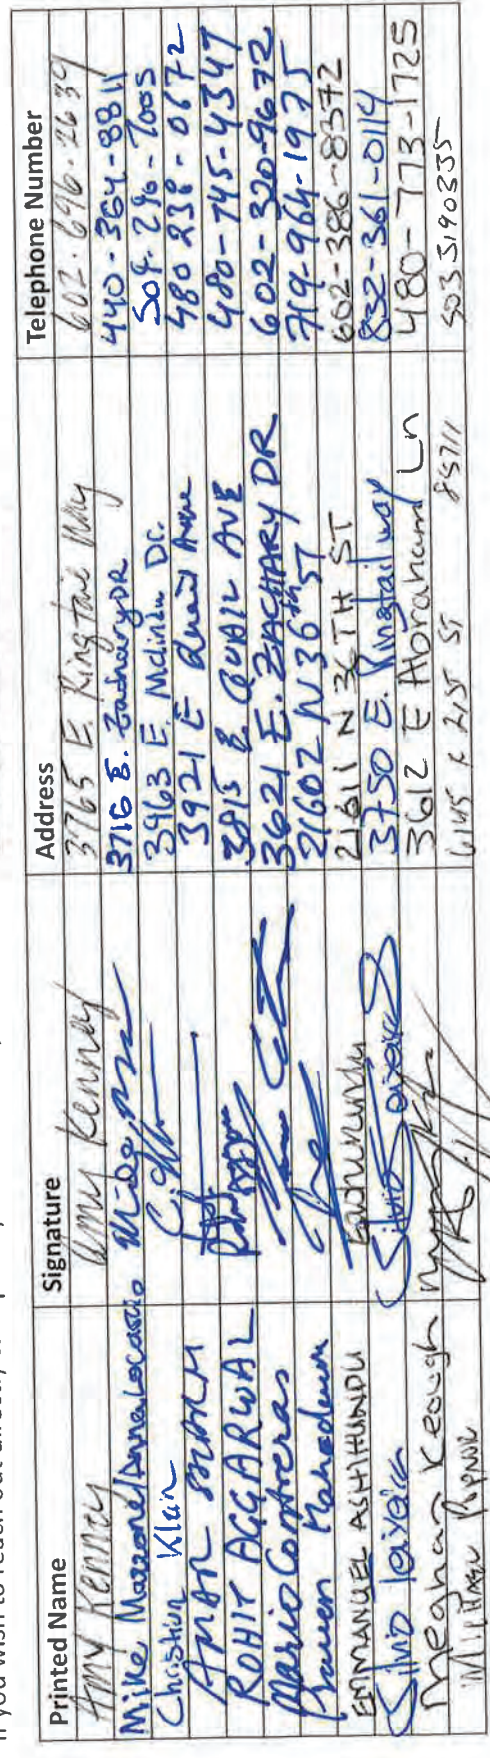 If you wish to reach out directly to
Printed Name Signature Address Telephone Number
Amy Kenney Amy Kenney 3765 E. Ringtail Way 602-696-2639
Mike Mazzone/Anna Locascio 3716 E. Zachary DR 440-364-8811
Christian Klein 3963 E. Melinda Dr. 509-296-7005
AMAN 3921 E Quail Avenue 480 238-0672
ROHIT AGGARWAL 3915 E QUAIL AVE 480-745-4347
Mario Contreras 3621 E. ZACHARY DR 602-320-9672
Praveen Mahadevan 21602 N 36th ST 719-964-1975
EMMANUEL ASHIHUNDU 21611 N 36TH ST 602-386-8372
Silvio Teixeira Silvio Teixeira 3750 E. Ringtail way 832-361-0114
Meghan Keough 3612 E Abraham Ln 480-773-1725
6145 21ST ST 85711 503 5190335